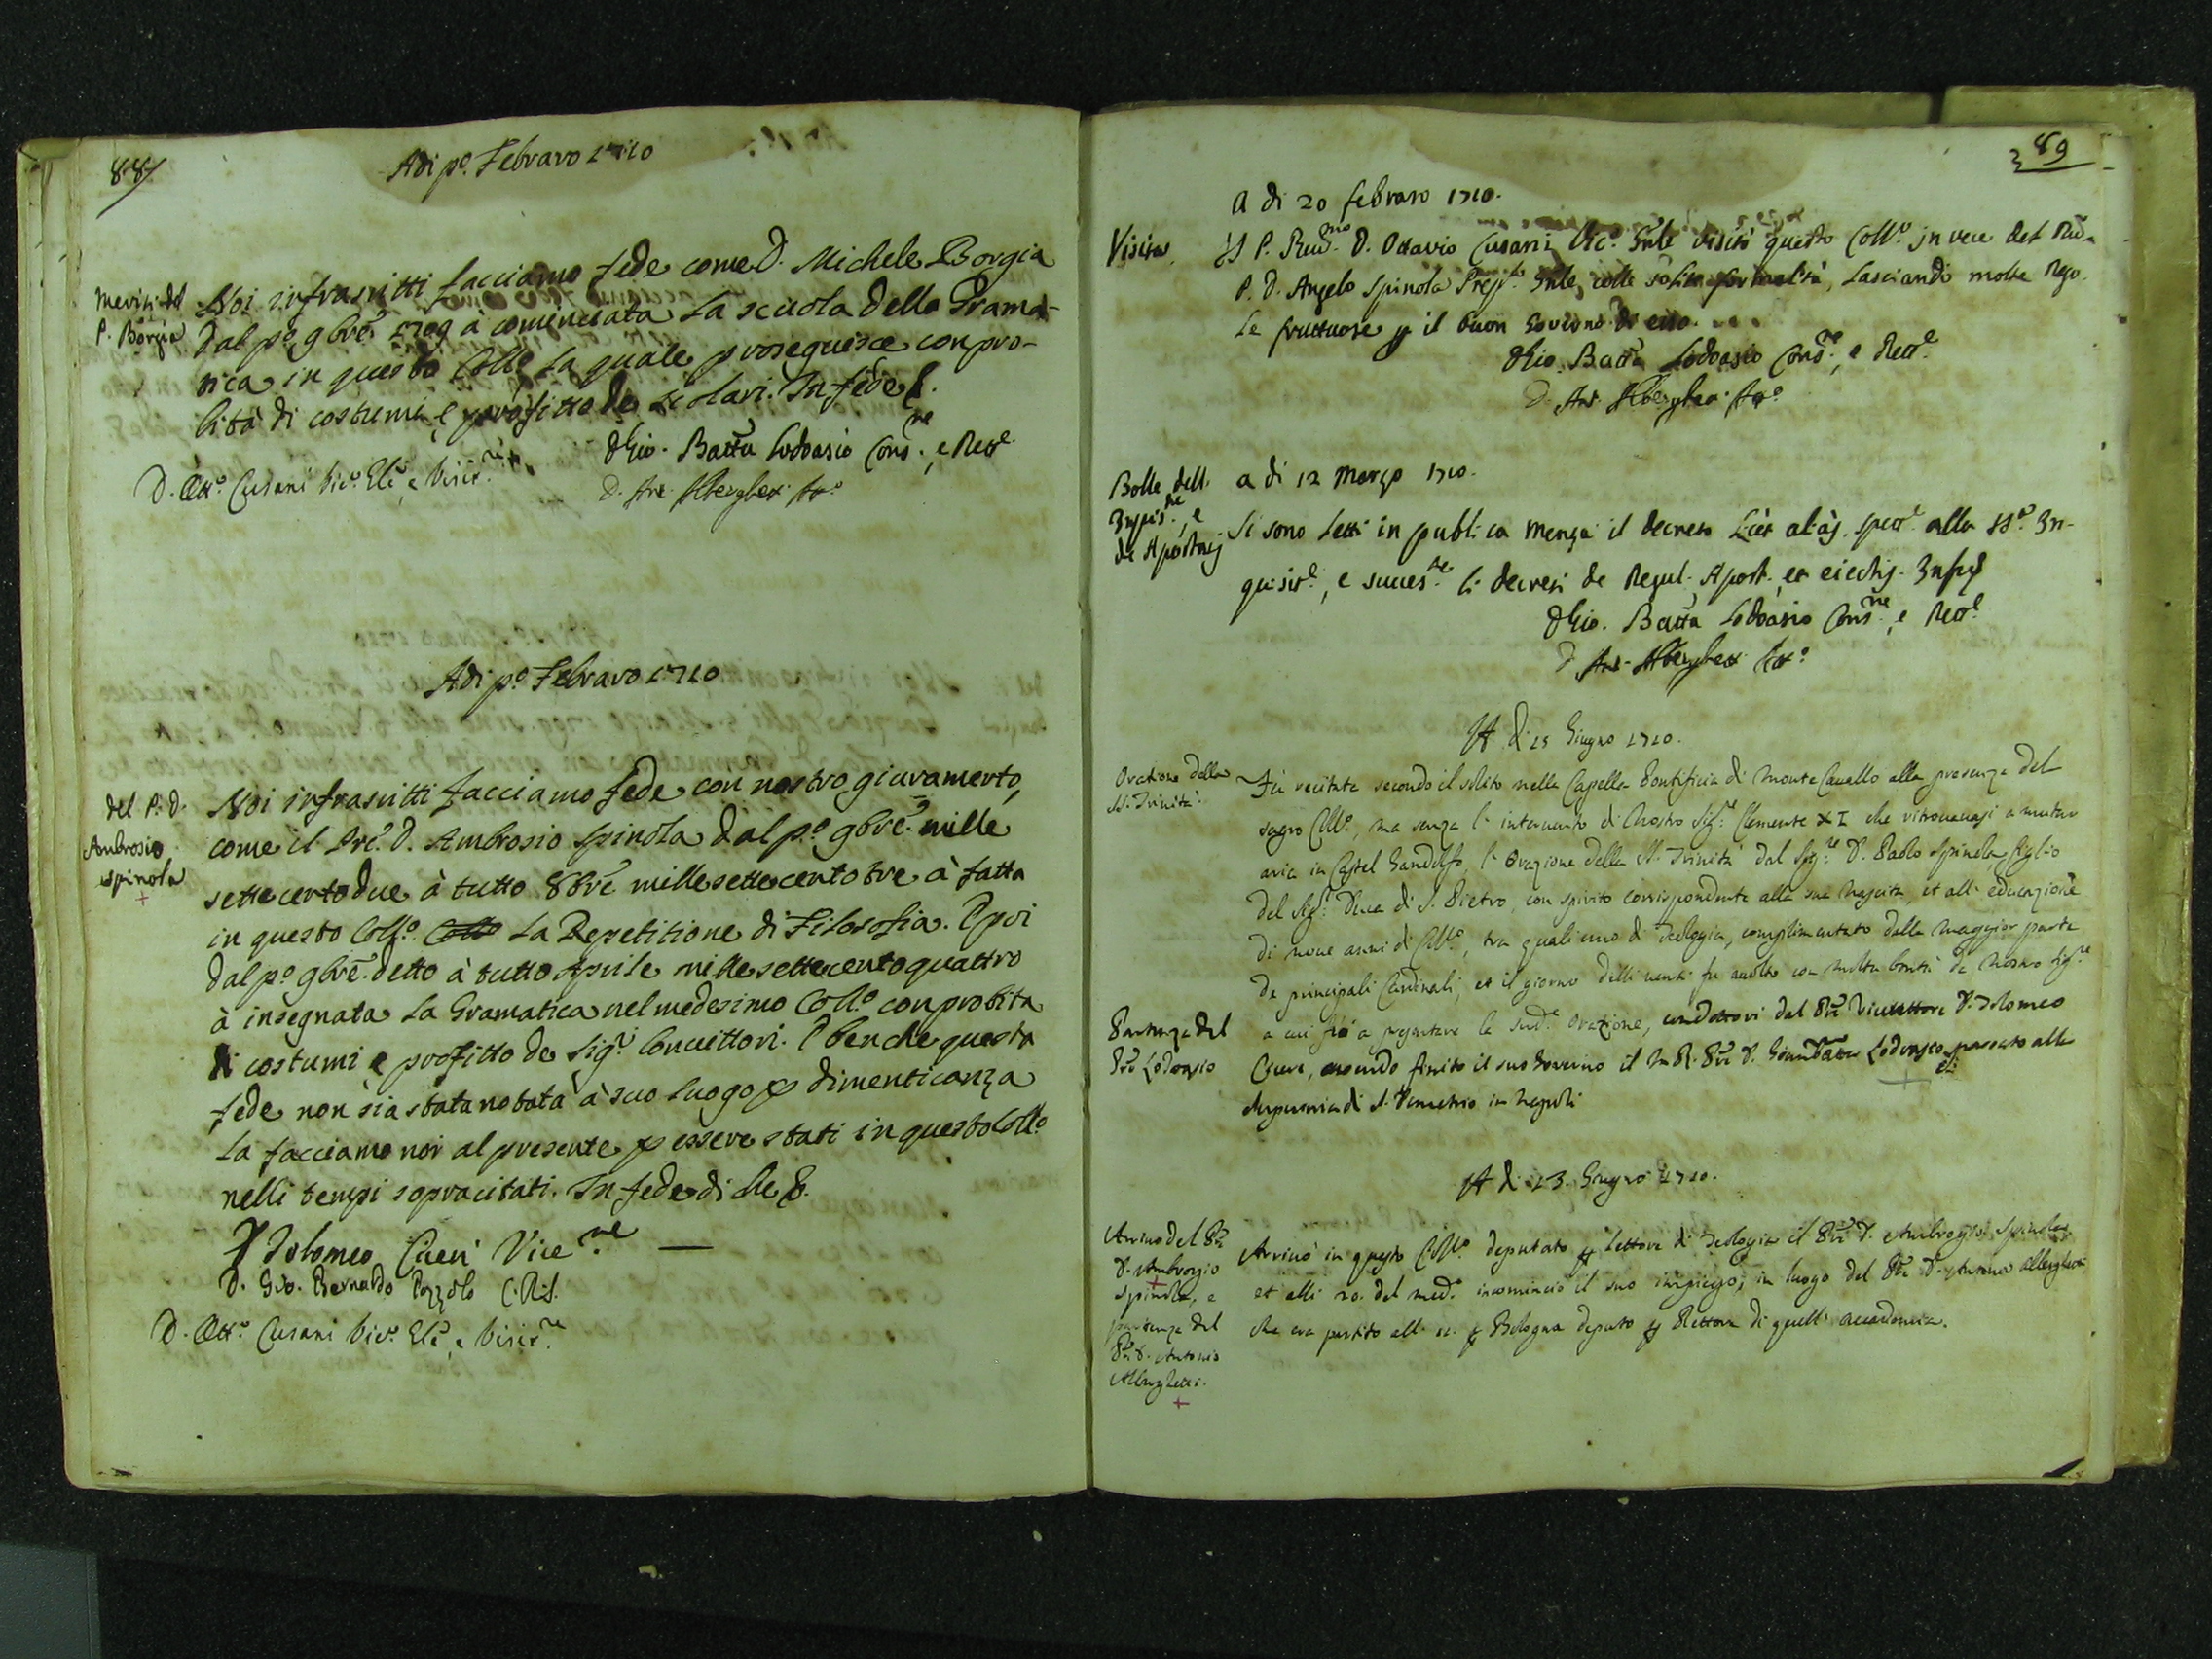 88
Adi pº. Febraro 1710
Meriti del
P. Borgia
Noi infrascritti facciamo fede come D. Michele Borgia
dal pº. 9bre 1709 à cominciata la scuola della Grama-
tica in questo Collº. la quale proseguisce con pro-
bità di costumi, e profitto de scolari. In fede &.
D. Gio. Batta Lodoasio Cons.re, e Rett.e
D. Ottº. Cusani Vicº. Gle, e Visit.re
D. Ant. Alberghetti
Adi pº. Febraro 1710
del P. D.
Ambrosio
Spinola
+
Noi infrascritti facciamo fede con nostro giuramento,
come il Pre. D. Ambrosio Spinola dal pº. 9bre. mille
settecento due à tutto 8bre mille settecento tre à fatta
in questo Collº. Collº la Repetitione di Filosofia. E poi
dal pº. 9bre. detto à tutto Aprile mille settecento quattro
à insegnata la Gramatica nel medesimo Collº. con probita
di costumi e profitto de Sig.ri Convittori. E benche questa
fede non sia stata notata à suo luogo p dimenticanza
la facciamo noi al presente p essere stati in questo Collº.
nelli tempi sopracitati. In fede di che &.
D Tolomeo Cueri Vice.re
D. Gio. Bernardo Pozzolo C.R.S.
D. Ottº. Cusani Vicº. Gle, e Visit.re
89
A di 20 febraro 1710.
Visita
Il P. Rud.mo D. Ottavio Cusani Vicº. Gnle visitò questo Collº. in vece del Rud.
P. D. Angelo Spinola Prep.to Gnle, colle solite formalità, lasciando molte rego-
le fruttuose p il buon Governo di esso.
D Gio. Batta Lodoasio Cons.re, e Rett.e
D. Ant. Alberghetti
Bolle dell'
Inquis.ne, e
de Apostatis
a di 12 Marzo 1710.
Si sono letti in publica menza il decreto Licet aliàs. spett.e alla SSª. In-
quisit.e, e succes.te li decreti de Regul. Apost. et eiectis.
D Gio. Batta Lodoasio Cons.re, e Rett.e
D. Ant. Alberghetti
A di 15 Giugno 1710.
Oratione della
SS. Trinità.
Fù recitata secondo il solito nella Capella Pontificia di Monte Cavallo alla presenza del
sagro Collº., ma senza l'intervento di Nostro Sig.re Clemente XI che ritrovavasi a mutar
aria in Castel Gandolfo, l'Orazione della SS. Trinità dal Sig.re D. Paolo Spinola, figlio
del Sig.r Duca di S. Pietro, con spirito corrispondente alla sua Nascita, et all'educazione
di nove anni di Collº., tra quali uno di Teologia, complimentato dalla maggior parte
de principali Cardinali; et il giorno delli venti fu accolto con molta bontà da Nostro Sig.re
a cui fù a presentare la sud.a Orazione, condottovi dal Pre Vicerettore D. Tolomeo
Partenza del
Pre Lodoasio
Cueri, avendo finito il suo Governo il M. R. Pre D. Giambatta Lodoasio passato alla
di S. Demetrio in Napoli
A di 23. Giugno 1710.
Arrivo del Pre
D. Ambrogio
Spinola, e
partenza del
Pre D. Antonio
Alberghetti.
+
Arrivò in questo Collº. deputato p Lettore di Teologia il Pre D. Ambrogio Spinola,
et alli 20. del med.º incominciò il suo impiego, in luogo del Pre D. Antonio Alberghetti
che era partito alli 11. p Bologna deputato p Rettore di quell'Accademia.